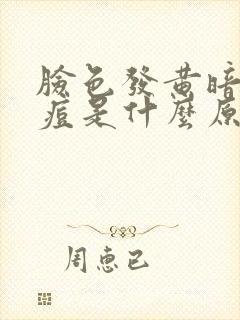 臉色發黃暗
痘是什麼原
周惠已